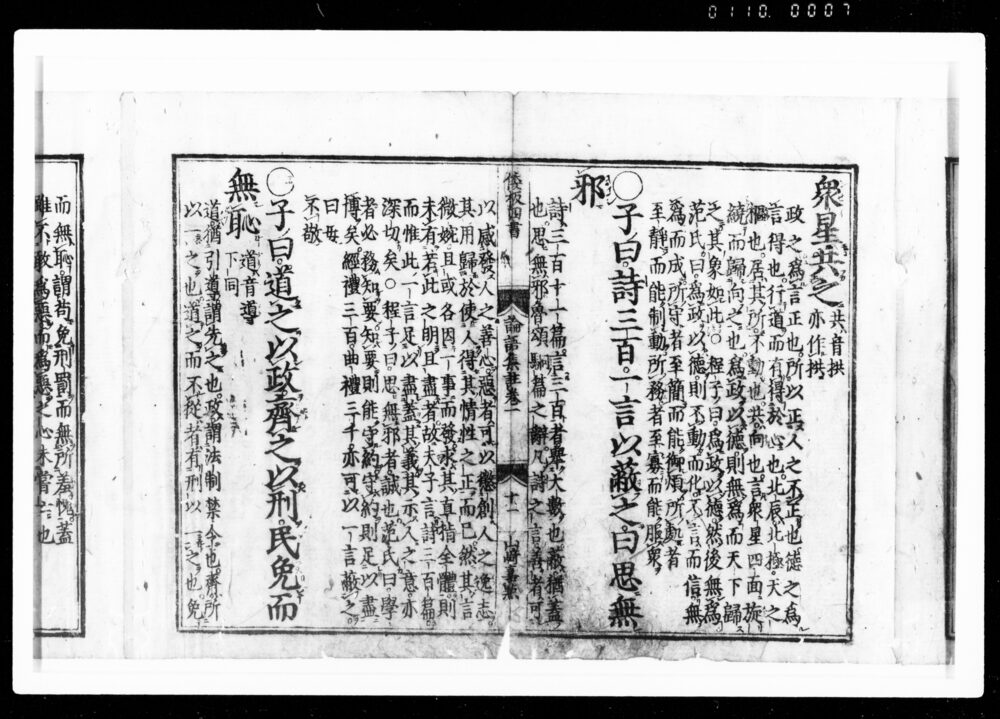 0110 0007
衆星共之 共音拱
亦作拱
政之爲言正也所以正人之不正也德之爲
言得也行道而有得於心也北辰北極天之
樞也居其所不動也共向也言衆星四面旋
繞而歸向之也爲政以德則無爲而天下歸
之其象如此〇程子曰爲政以德然後無爲
范氏曰爲政以德則不動而化不言而信無
爲而成所守者至簡而能御煩所動者
至靜而能制動所務者至寡而能服衆
〇子曰詩三百一言以蔽之曰思無
邪
詩三百十一篇言三百者舉大數也蔽猶蓋
也思無邪魯頌駉篇之辭凡詩之言善者可
倭板四書
論語集註卷一
十二
山崎嘉點
以感發人之善心惡者可以懲創人之逸志
其用歸於使人得其情性之正而已然其言
微婉且或各因一事而發求其直指全體則
未有若此之明且盡者故夫子言詩三百篇
而惟此一言足以盡蓋其義其示人之意亦
深切矣〇程子曰思無邪者誠也范氏曰學
者必務知要知要則能守約守約則足以盡
博矣經禮三百曲禮三千亦可以一言蔽之
曰毋
不敬
〇子曰道之以政齊之以刑民免而
無恥 道音導
下同
道猶引導謂先之也政謂法制禁令也齊所
以一之也道之而不從者有刑以一之也免
而無恥謂苟免刑罰而無所羞愧蓋
雖不敢爲惡而爲惡之心未嘗亡也